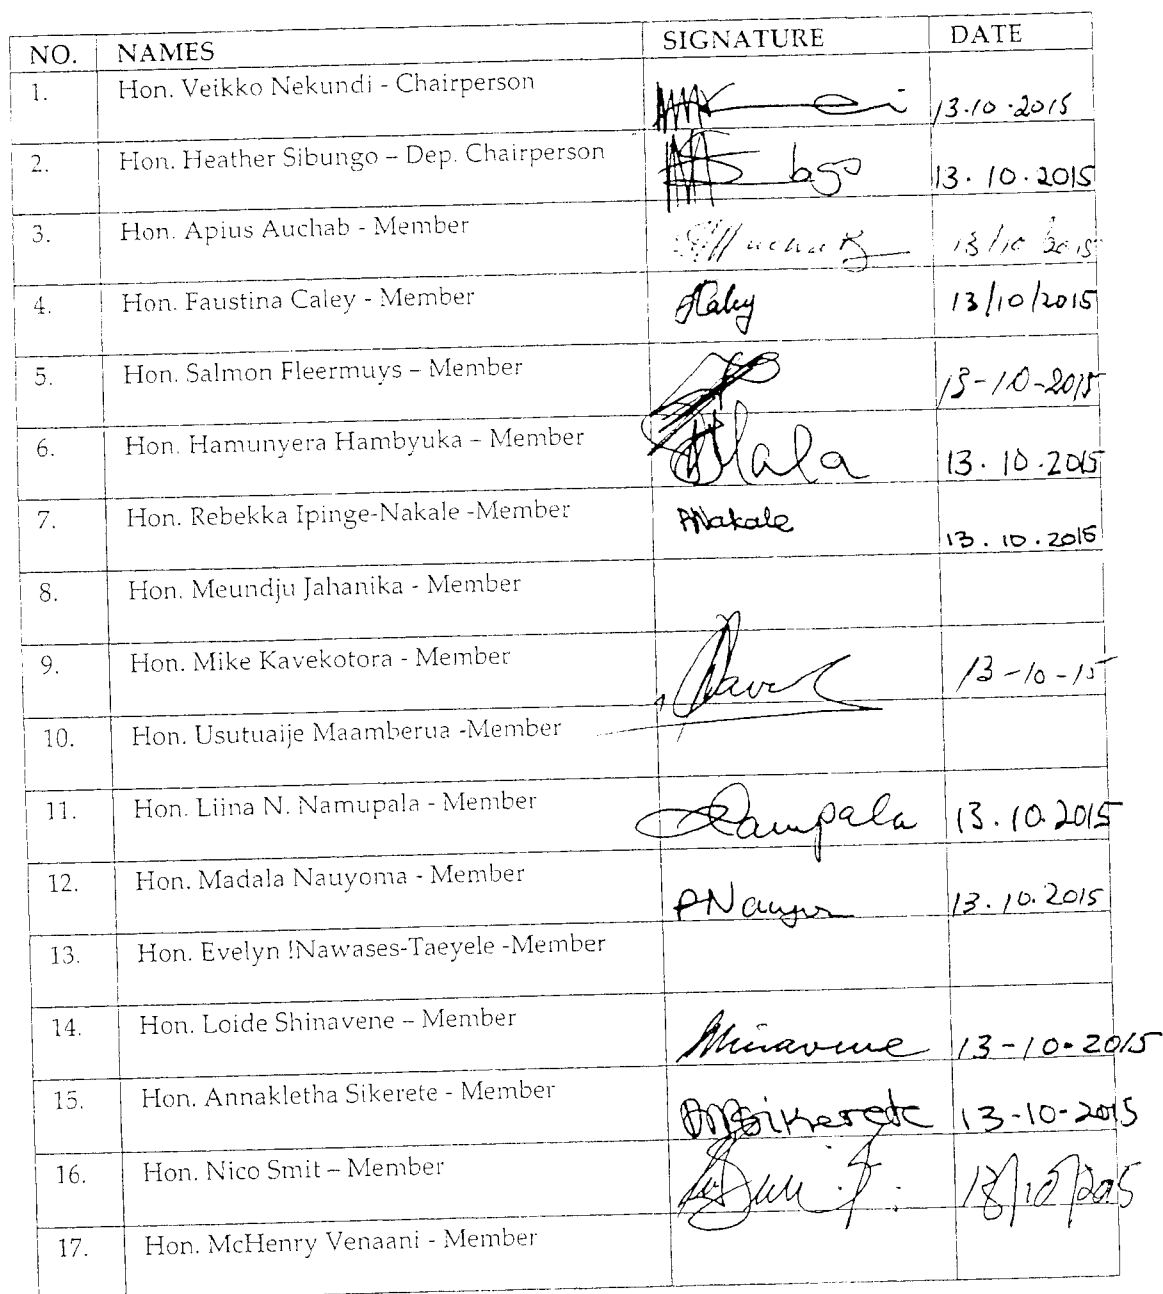 NO. NAMES SIGNATURE DATE
1. Hon. Veikko Nekundi - Chairperson 13.10.2015
2. Hon. Heather Sibungo – Dep. Chairperson 13.10.2015
3. Hon. Apius Auchab - Member 13/10/2015
4. Hon. Faustina Caley - Member 13/10/2015
5. Hon. Salmon Fleermuys – Member 13-10-2015
6. Hon. Hamunyera Hambyuka – Member 13.10.2015
7. Hon. Rebekka Ipinge-Nakale -Member RNakale 13.10.2015
8. Hon. Meundju Jahanika - Member
9. Hon. Mike Kavekotora - Member 13-10-15
10. Hon. Usutuaije Maamberua -Member
11. Hon. Liina N. Namupala - Member 13.10.2015
12. Hon. Madala Nauyoma - Member 13.10.2015
13. Hon. Evelyn !Nawases-Taeyele -Member
14. Hon. Loide Shinavene – Member 13-10-2015
15. Hon. Annakletha Sikerete - Member 13-10-2015
16. Hon. Nico Smit – Member 13/10/2015
17. Hon. McHenry Venaani - Member